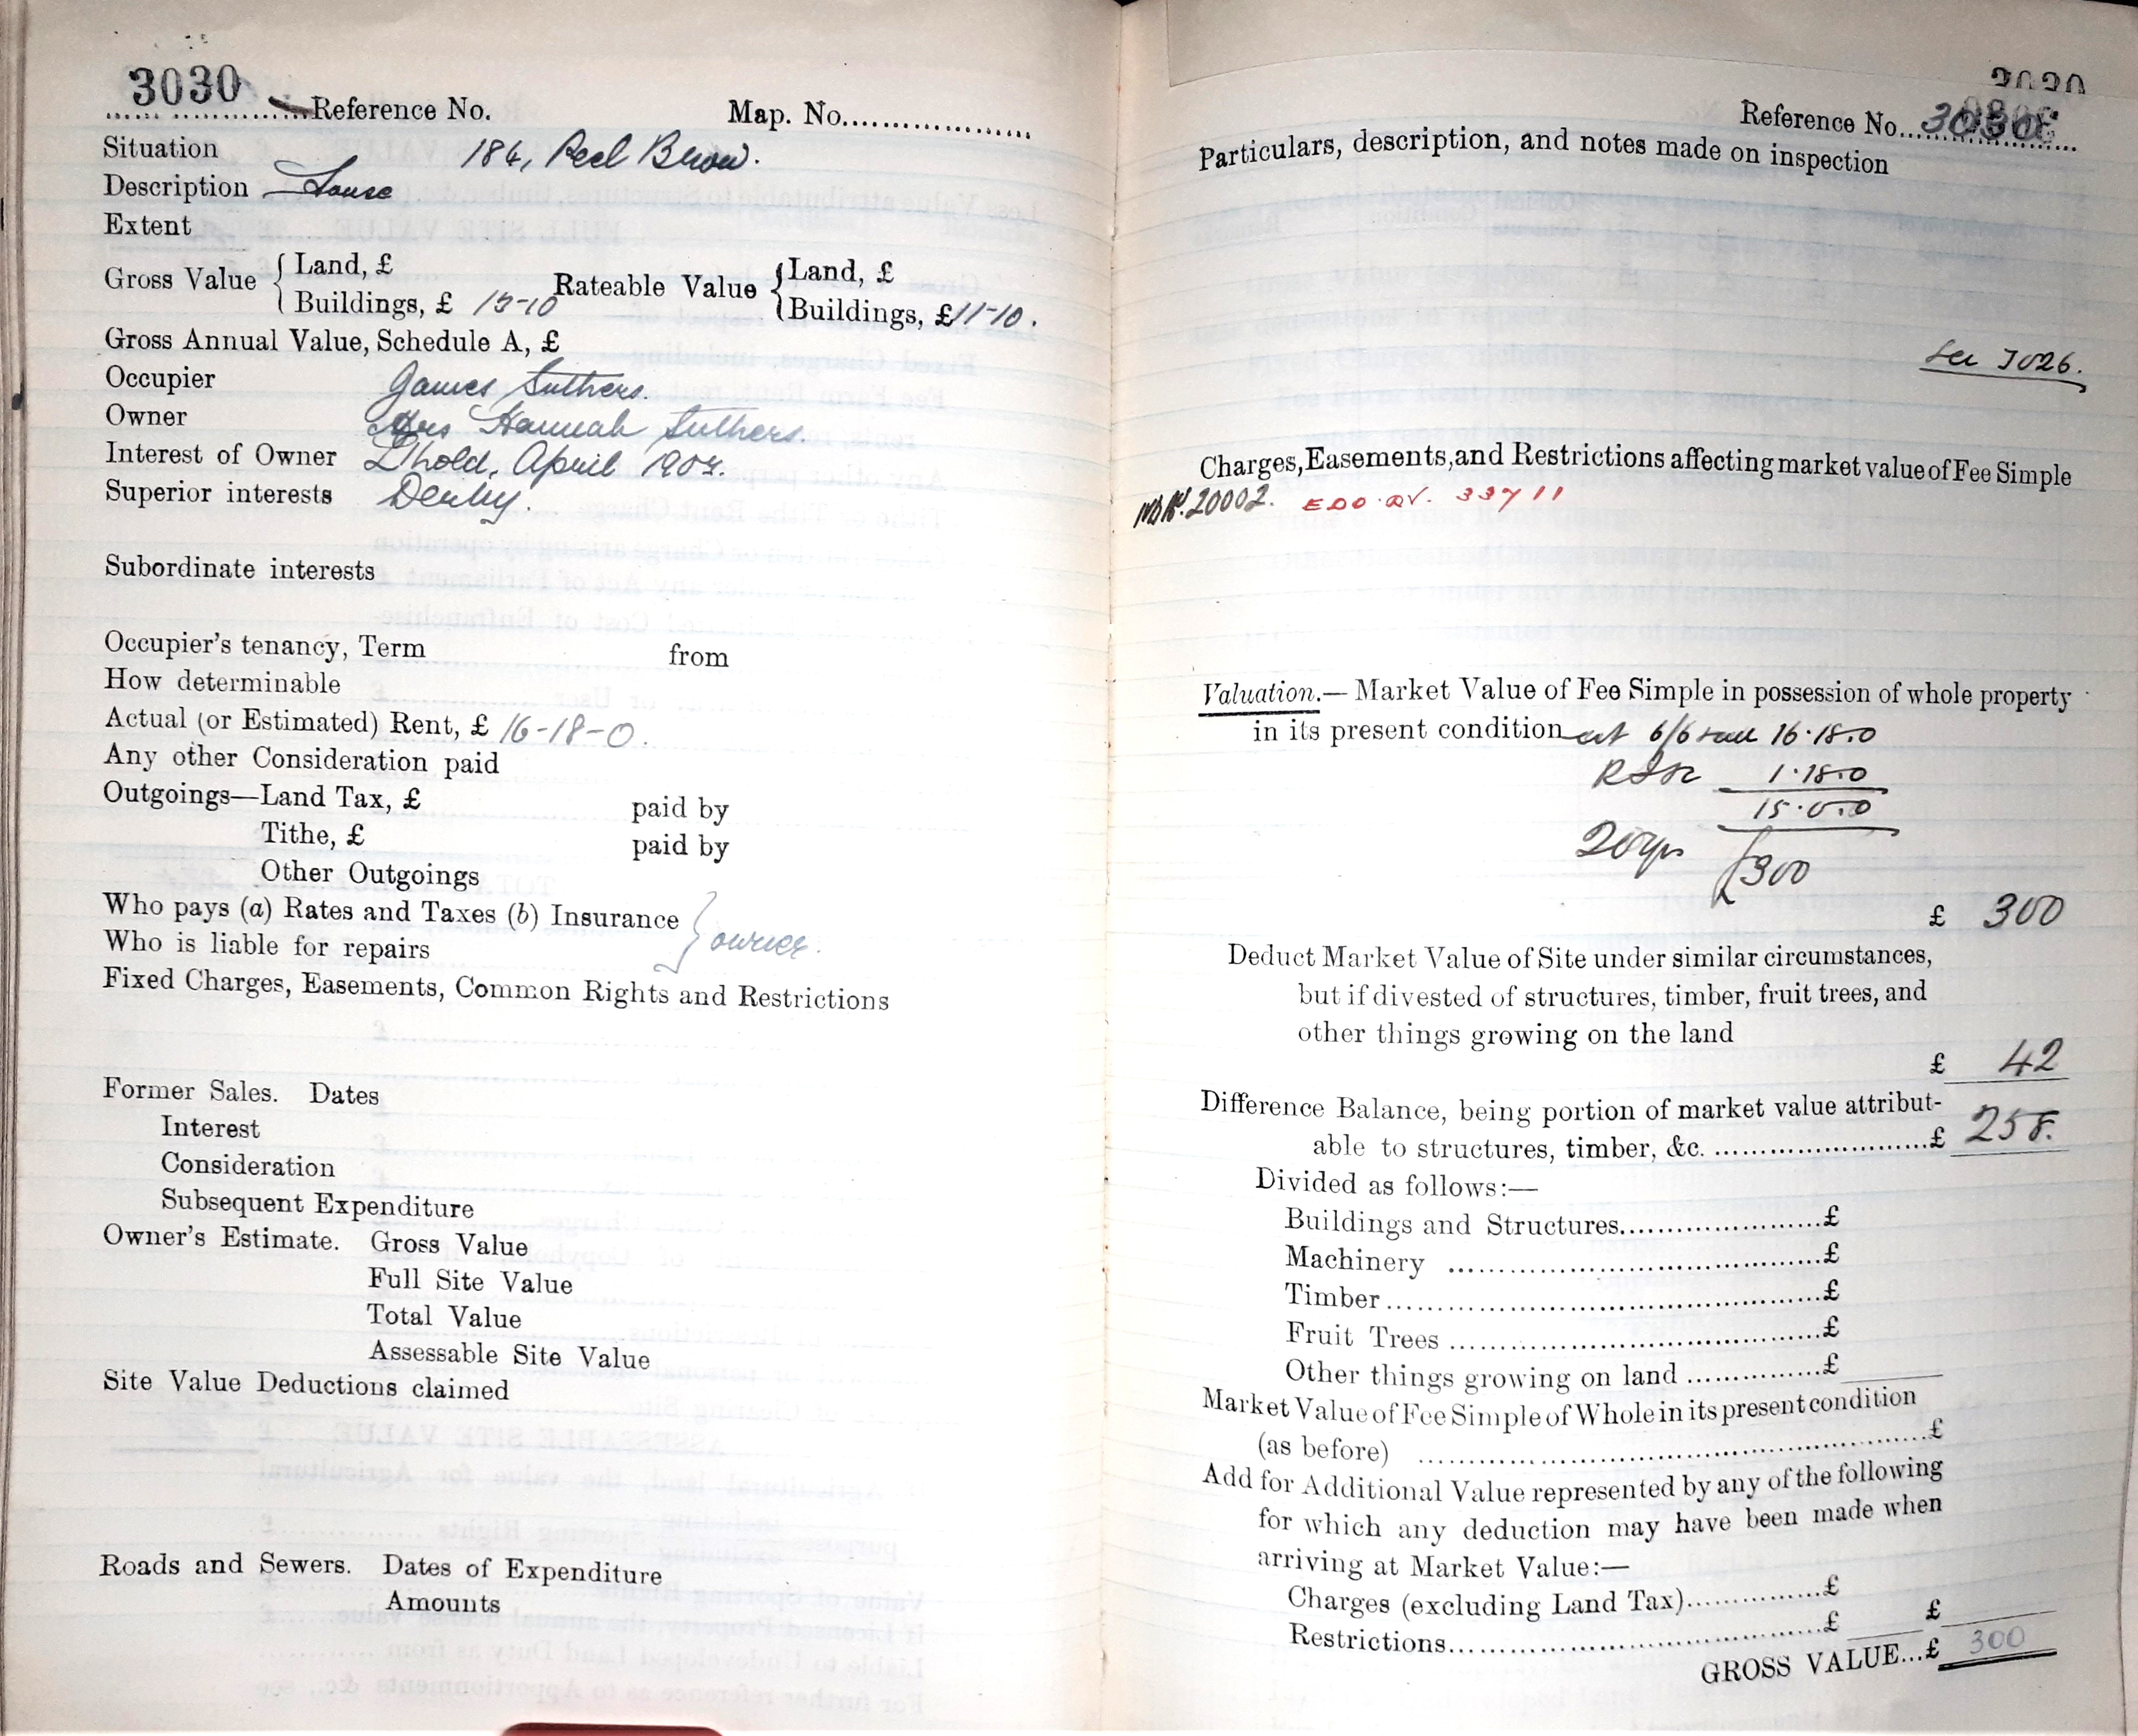 3030 Reference No. Map. No.
Situation 184, Peel Brow.
Description House
Extent
Gross Value { Land, £ Rateable Value { Land, £
Buildings, £ 15-10 Buildings, £ 11-10.
Gross Annual Value, Schedule A, £
Occupier James Suthers.
Owner Mrs Hannah Suthers.
Interest of Owner L'hold, April
Superior interests Derby.
Subordinate interests
Occupier's tenancy, Term from
How determinable
Actual (or Estimated) Rent, £ 16-18-0.
Any other Consideration paid
Outgoings—Land Tax, £ paid by
Tithe, £ paid by
Other Outgoings
Who pays (a) Rates and Taxes (b) Insurance } owner.
Who is liable for repairs
Fixed Charges, Easements, Common Rights and Restrictions
Former Sales. Dates
Interest
Consideration
Subsequent Expenditure
Owner's Estimate. Gross Value
Full Site Value
Total Value
Assessable Site Value
Site Value Deductions claimed
Roads and Sewers. Dates of Expenditure
Amounts
3030
Reference No. 3030
Particulars, description, and notes made on inspection
See 3026.
Charges, Easements, and Restrictions affecting market value of Fee Simple
20002. EDO. 33711
Valuation.— Market Value of Fee Simple in possession of whole property
in its present condition at 6/6 16.18.0
1.18.0
15.0.0
20 yrs £300
£ 300
Deduct Market Value of Site under similar circumstances,
but if divested of structures, timber, fruit trees, and
other things growing on the land
£ 42
Difference Balance, being portion of market value attribut-
able to structures, timber, &c. £ 258.
Divided as follows:—
Buildings and Structures £
Machinery £
Timber £
Fruit Trees £
Other things growing on land £
Market Value of Fee Simple of Whole in its present condition
(as before) £
Add for Additional Value represented by any of the following
for which any deduction may have been made when
arriving at Market Value:—
Charges (excluding Land Tax) £
Restrictions £ £
GROSS VALUE...£ 300